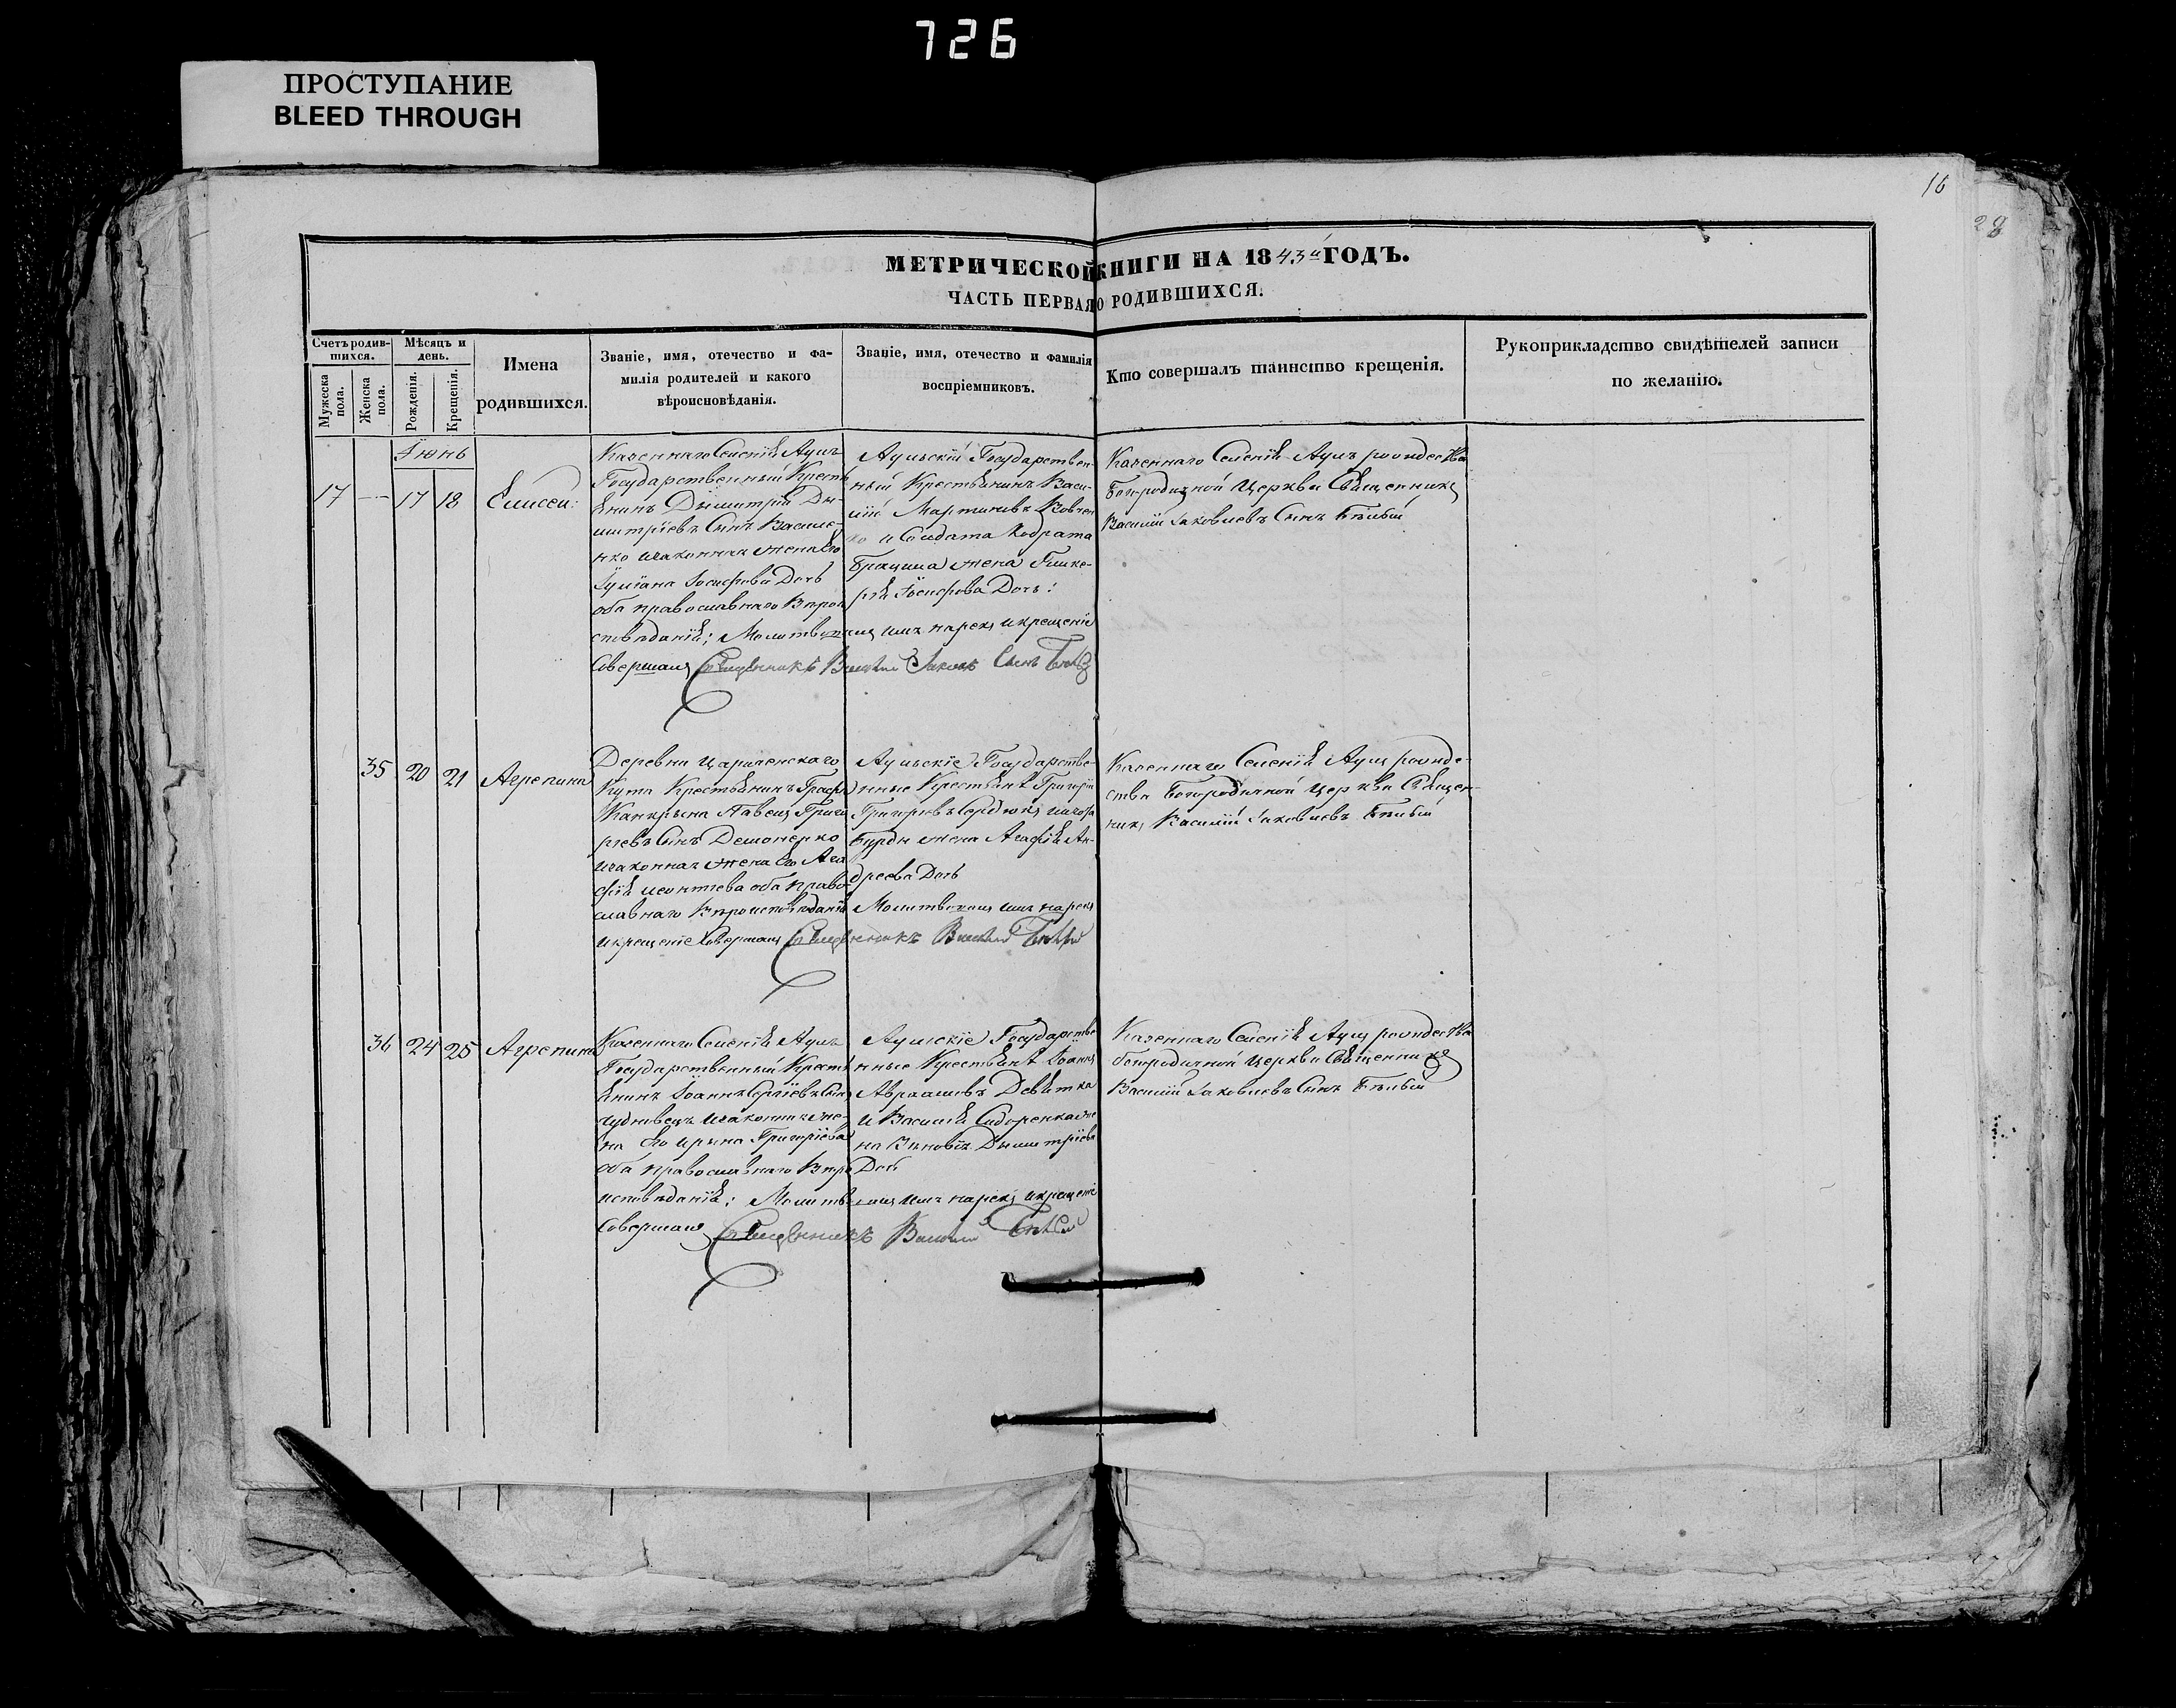 726
ПРОСТУПАНИЕ
BLEED THROUGH
16
28
МЕТРИЧЕСКОЙ КНИГИ НА 1843й ГОДЪ.
ЧАСТЬ ПЕРВАЯ О РОДИВШИХСЯ.
Счетъ родив-
шихся.
Мужеска
пола.
Женска
пола.
Мѣсяцъ и
день.
Рожденія.
Крещенія.
Имена
родившихся.
Званіе, имя, отечество и фа-
милія родителей и какого
вѣроисновѣданія.
Званіе, имя, отечество и фамилія
воспріемниковъ.
Кто совершалъ таинство крещенія.
Рукоприкладство свидѣтелей записи
по желанію.
Іюнь
17 — 17 18 Елисей:
Казеннаго Селенія Аулъ
Государственный Кресть
янинъ Димитрій Ди-
митріевъ Сынъ Василе-
нко изаконная жена Его
Іуліана Іосифова Дочь
оба православнаго Вѣрои
сповѣданія; Молитвовалъ имя нарекъ икрещеніе
Совершалъ Священникъ Василий Іаковъ Сынъ
Аульскій Государствен-
ный Крестьянинъ Васи-
лій Мартиновъ
и Солдата Кодрата
жена Глике-
рія Іосифова Дочь:
Казеннаго Селенія Аулъ рождества
Богородичной Церкви Священникъ
Василій Іаковлевъ Сынъ Бѣлый
35 20 21 Агрепина
Деревни Цариченскаго
Кута Крестьянинъ Графа
Канкрина Павелъ Григо
риевъ Сынъ
изаконная жена Его Ага
фія Леонтиева оба право-
славнаго Вѣроисповѣданія
икрещеніе Совершалъ Священникъ Василий
Аульскіе Государстве-
нные Крестьяне Григорій
Григориевъ Сердюкъ
Бурди жена Агафія Ан-
дреева Дочь
Молитвовалъ имя нарекъ
Казеннаго Селенія Аулъ рожде-
ства Богородичной Церкви Священ-
никъ Василій Іаковлевъ Бѣлый
36 24 25 Агрепина
Казеннаго Селенія Аулъ
Государственный Кресть
янинъ Іоаннъ Сергіевъ Сынъ
Чудновецъ изаконная же-
на Его Ирина Григоріева
оба православнаго Вѣро
исповѣданія: Молитвовалъ имя нарекъ икрещеніе
Совершалъ Священникъ Василий
Аульскіе Государстве
нные Крестьяне Іоаннъ
Авраамовъ Девятка
и Василія Сидоренка же
на Димитріева
Дочь
Казеннаго Селенія Аулъ рождества
богородичной Церкви Священникъ
Василій Іаковлевъ Сынъ Бѣлый